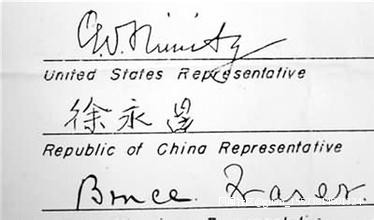 C.W. Nimitz
United States Representative
徐永昌
Republic of China Representative
Bruce Fraser.
Representative